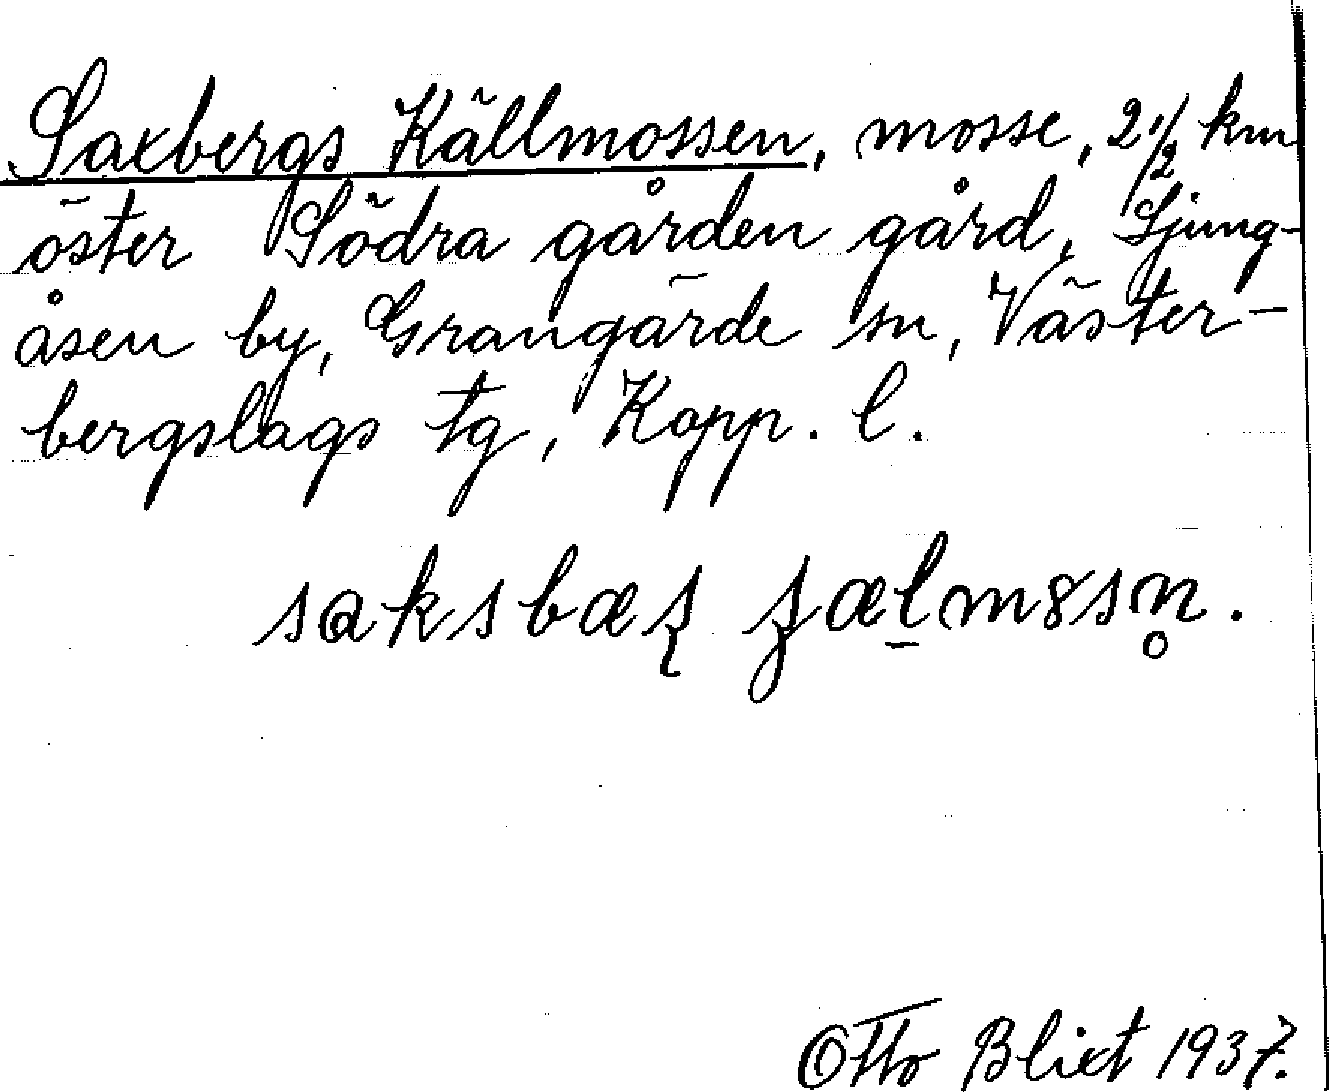 Saxbergs Källmossen, mosse, 2 1/2 km
öster Södra gården gård, Ljung-
åsen by, Grangärde sn, Väster-
bergslags tg, Kopp. l.
saksbæʂ
Otto Blixt 1937.